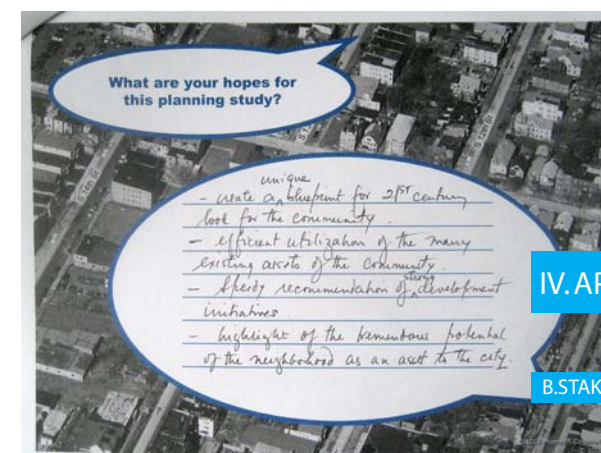 What are your hopes for
this planning study?
S 14th St
S 12th St
unique
- create a ^ blueprint for 21ST century
look for the community.
- efficient utilization of the many
existing assets of the community.
strong
- speedy recommendation of ^ development
initiatives.
- highlight of the tremendous potential
of the neighborhood as an asset to the city.
IV. AP
B.STAK